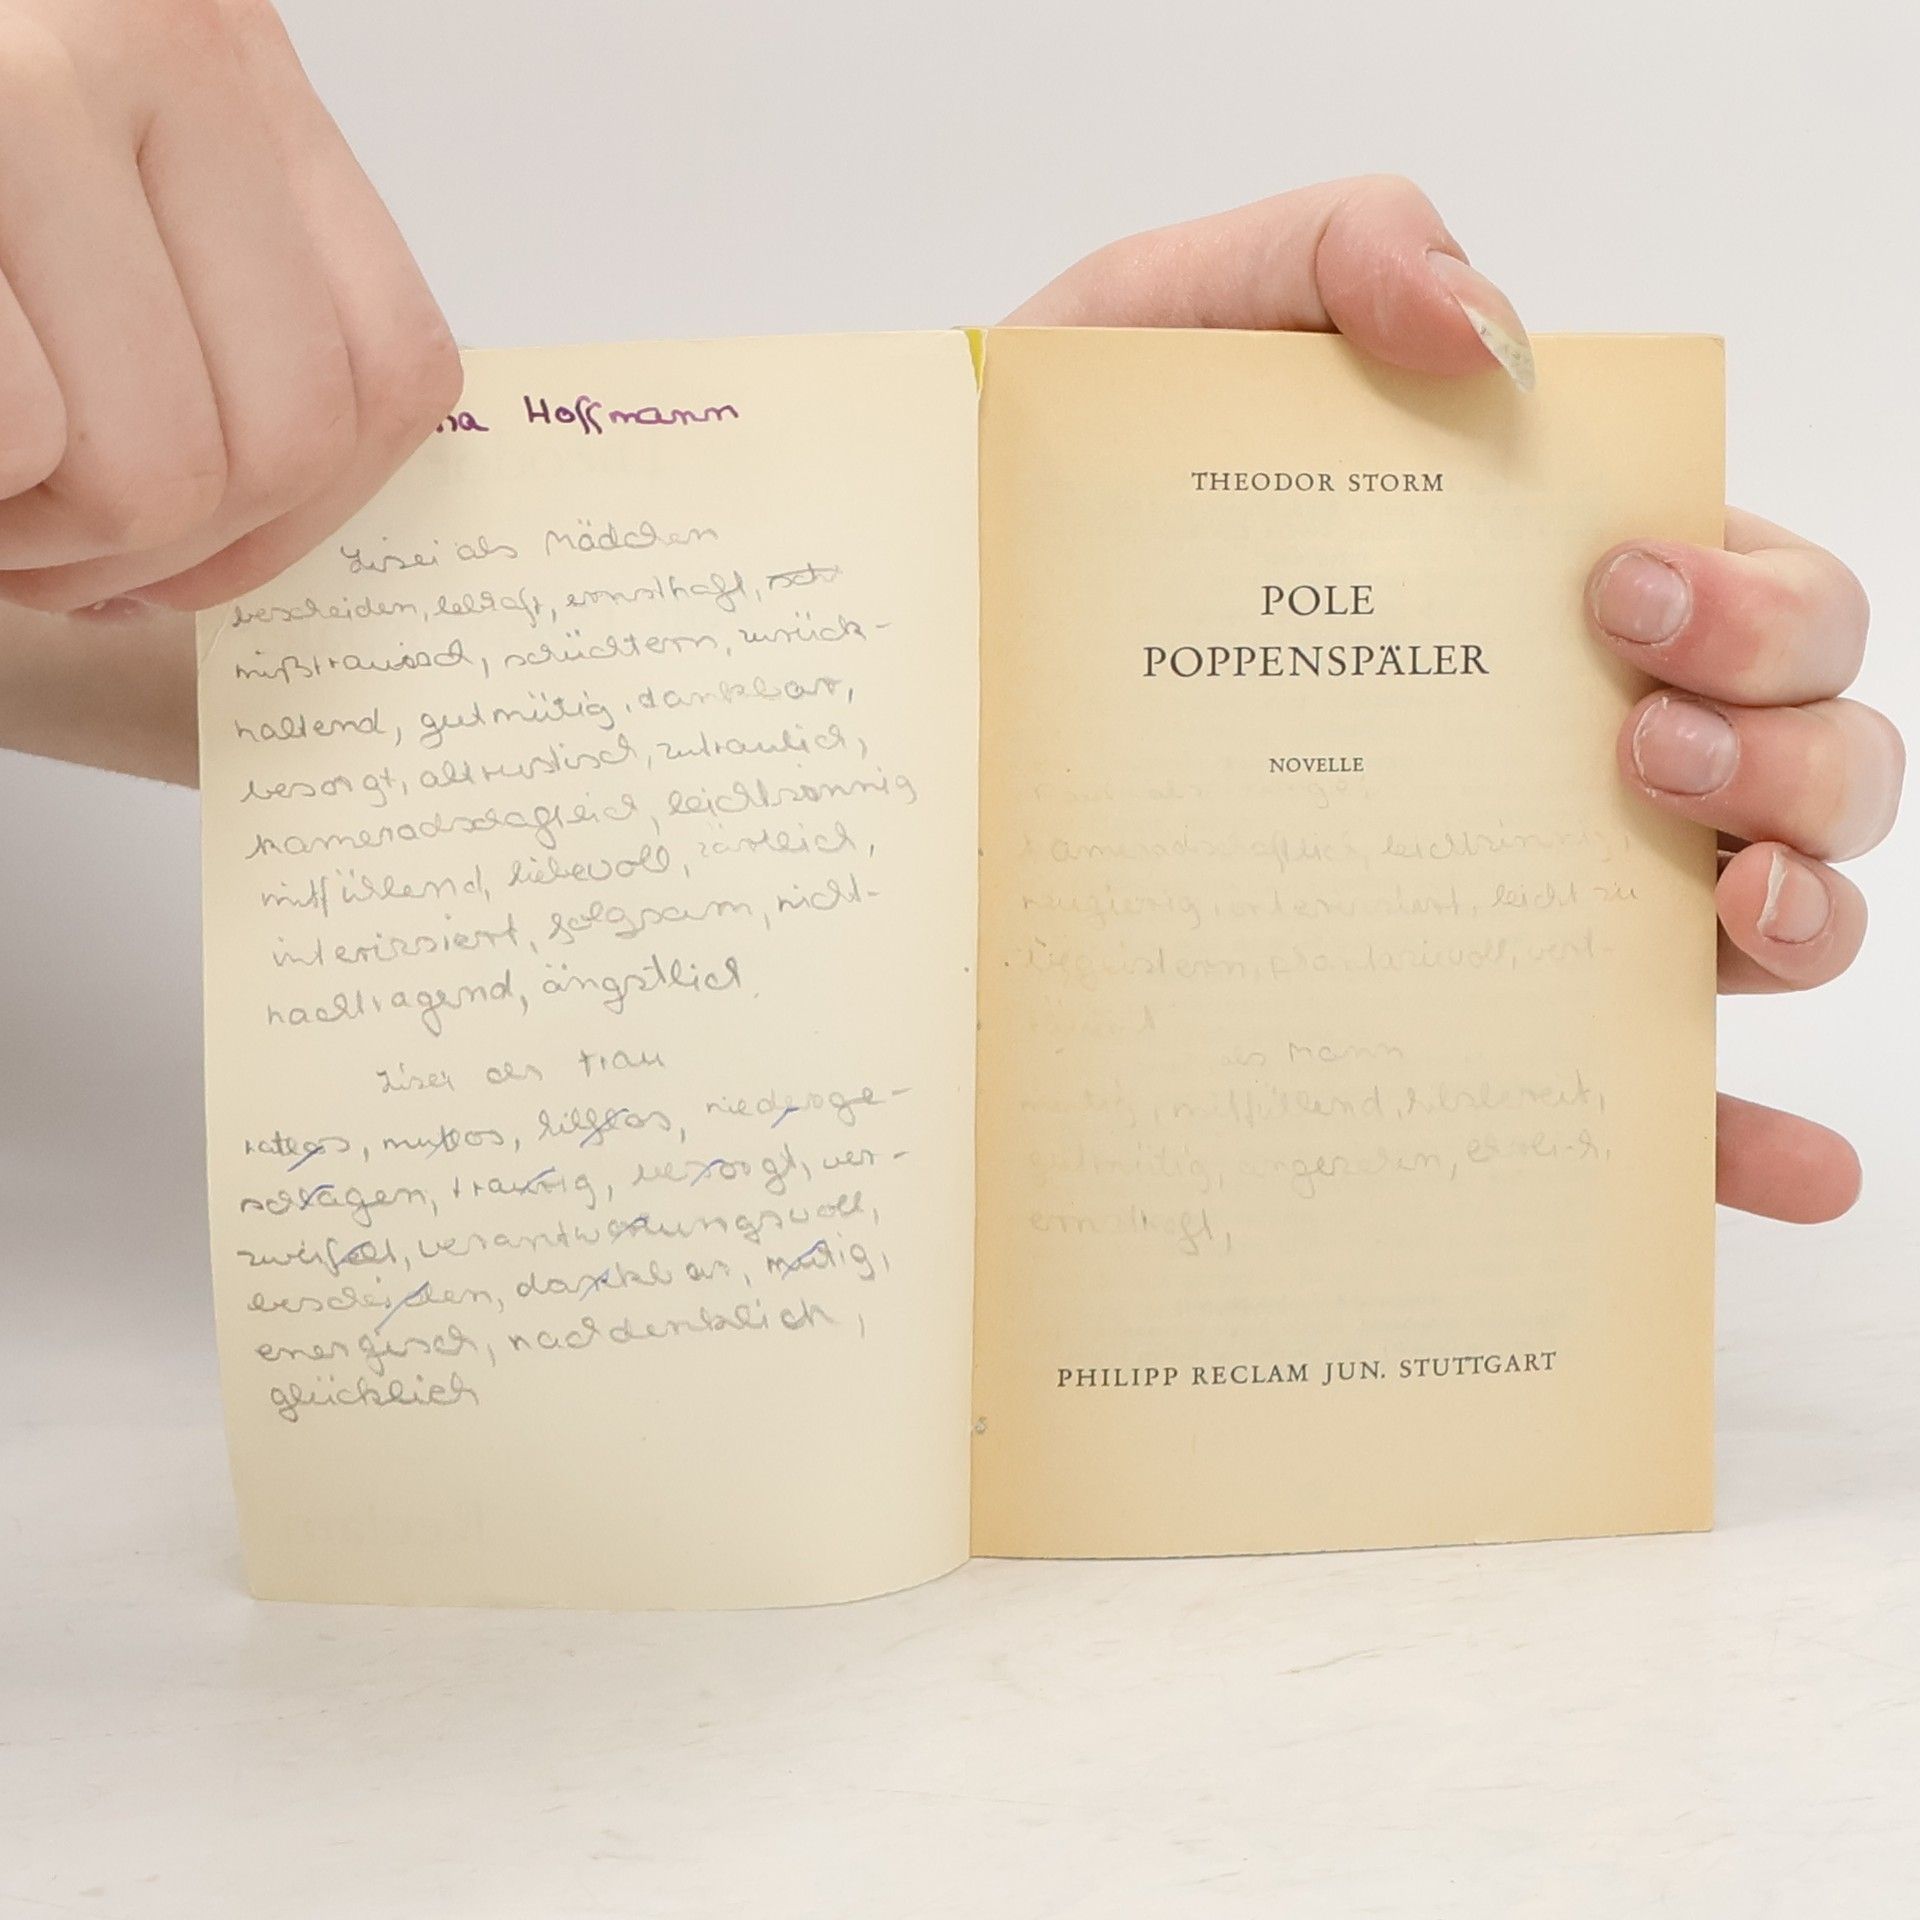 na Hoffmann
Lisei als Mädchen
bescheiden, lebhaft, ernsthaft,
mißtrauisch, schüchtern, zurück-
haltend, gutmütig, dankbar,
besorgt, altrustisch, zutraulich,
kameradschaftlich, leichtsinnig
mitfühlend, liebevoll, zärtlich,
interessiert, folgsam, nicht-
nachtragend, ängstlich.
Lisei als Frau
ratlos, mutlos, hilflos, niederge-
schlagen, traurig, besorgt, ver-
zweifelt, verantwortungsvoll,
bescheiden, dankbar, mutig,
energisch, nachdenklich,
glücklich
THEODOR STORM
POLE
POPPENSPÄLER
NOVELLE
kameradschaftlich, leichtsinnig,
neugierig, interessiert, leicht zu
begeistern, phantasievoll, vert-
räumt
als Mann
mutig, mitfühlend, hilsbereit,
gutmütig, ehrlich,
ernsthaft,
PHILIPP RECLAM JUN. STUTTGART